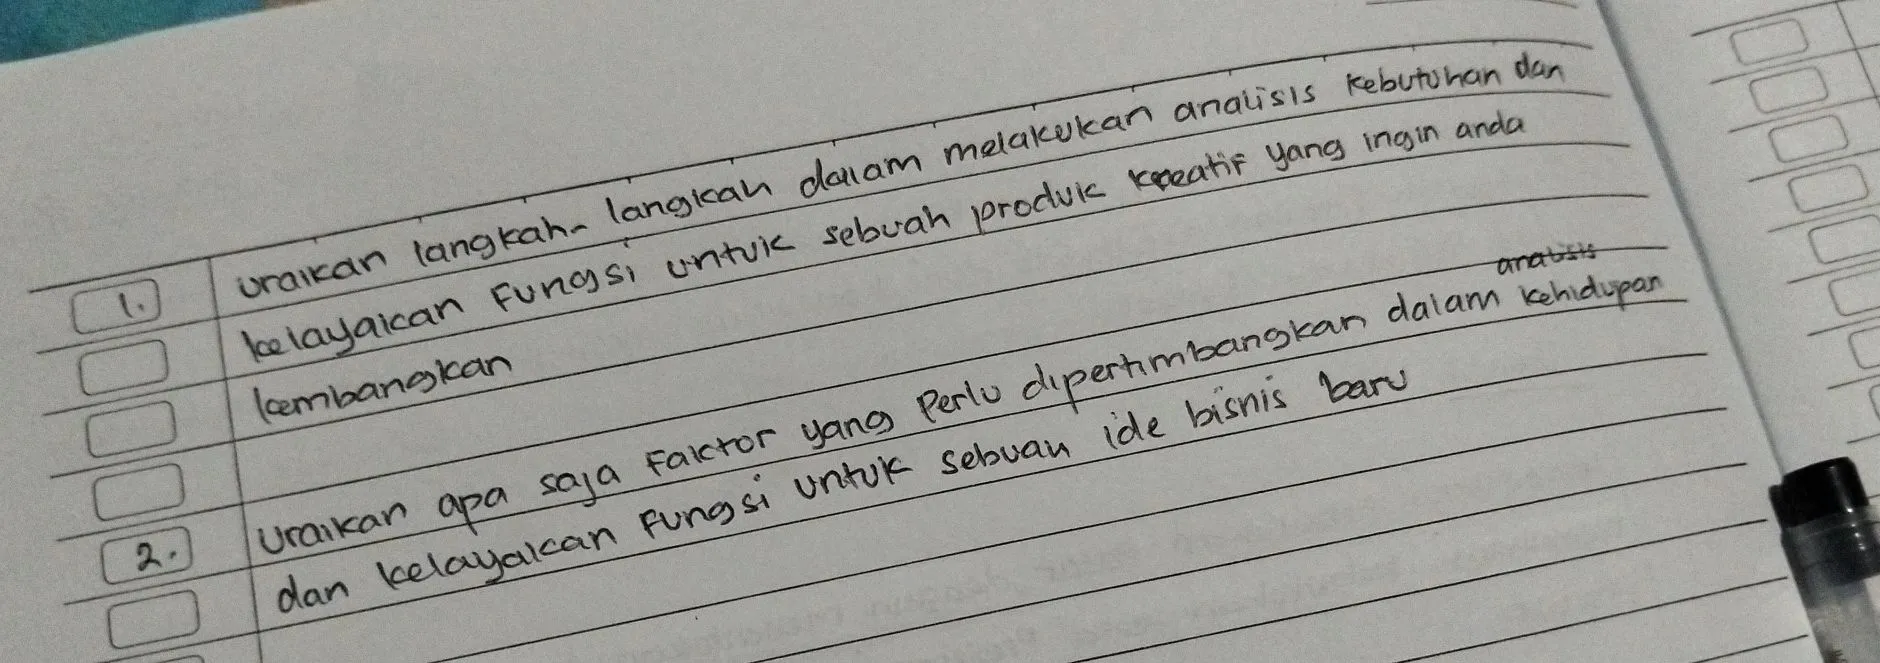 1. uraikan langkah-langkah dalam melakukan analisis kebutuhan dan
kelayakan fungsi untuk sebuah produk kreatif yang ingin anda
kembangkan
analisis
2. Uraikan apa saja faktor yang perlu dipertimbangkan dalam kehidupan
dan kelayakan fungsi untuk sebuah ide bisnis baru